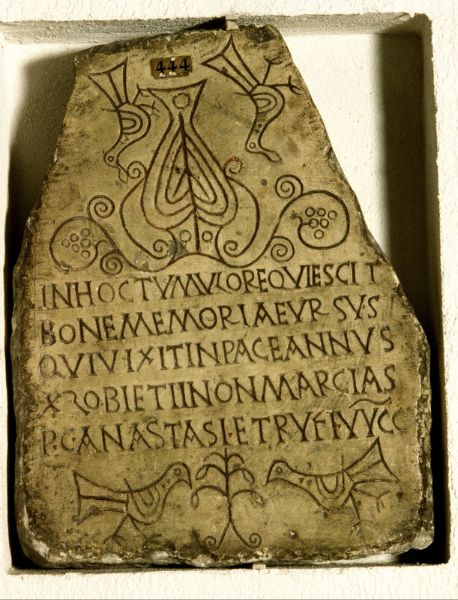 444
INHOCTVMVLOREQVIESCIT
BONEMEMORIAEVRSVS
QVIVIXITINPACEANNVS
OBIETIINONMARCIAS
P.C.ANASTASIETRVFIVVCC